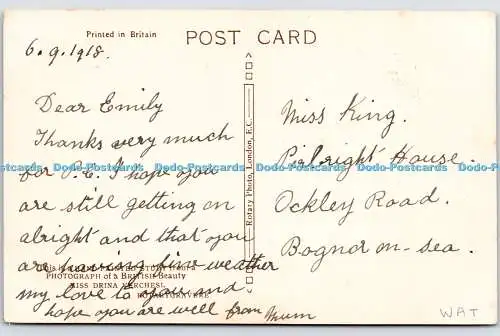 Printed in Britain
POST CARD
6.9.1918.
Dear Emily
Thanks very much
for P.C. I hope you
are still getting on
alright and that you
are having fine weather
my love to you and
hope you are well from Mum
PHOTOGRAPH of a BRITISH Beauty
MISS DRINA VERCHESI.
Rotary Photo, London, E.C.
Miss King.
Pirbright House.
Ockley Road.
Bognor on-sea.
WAT
Dodo-Postcards Dodo-Postcards Dodo-Postcards Dodo-Postcards Dodo-Postcards